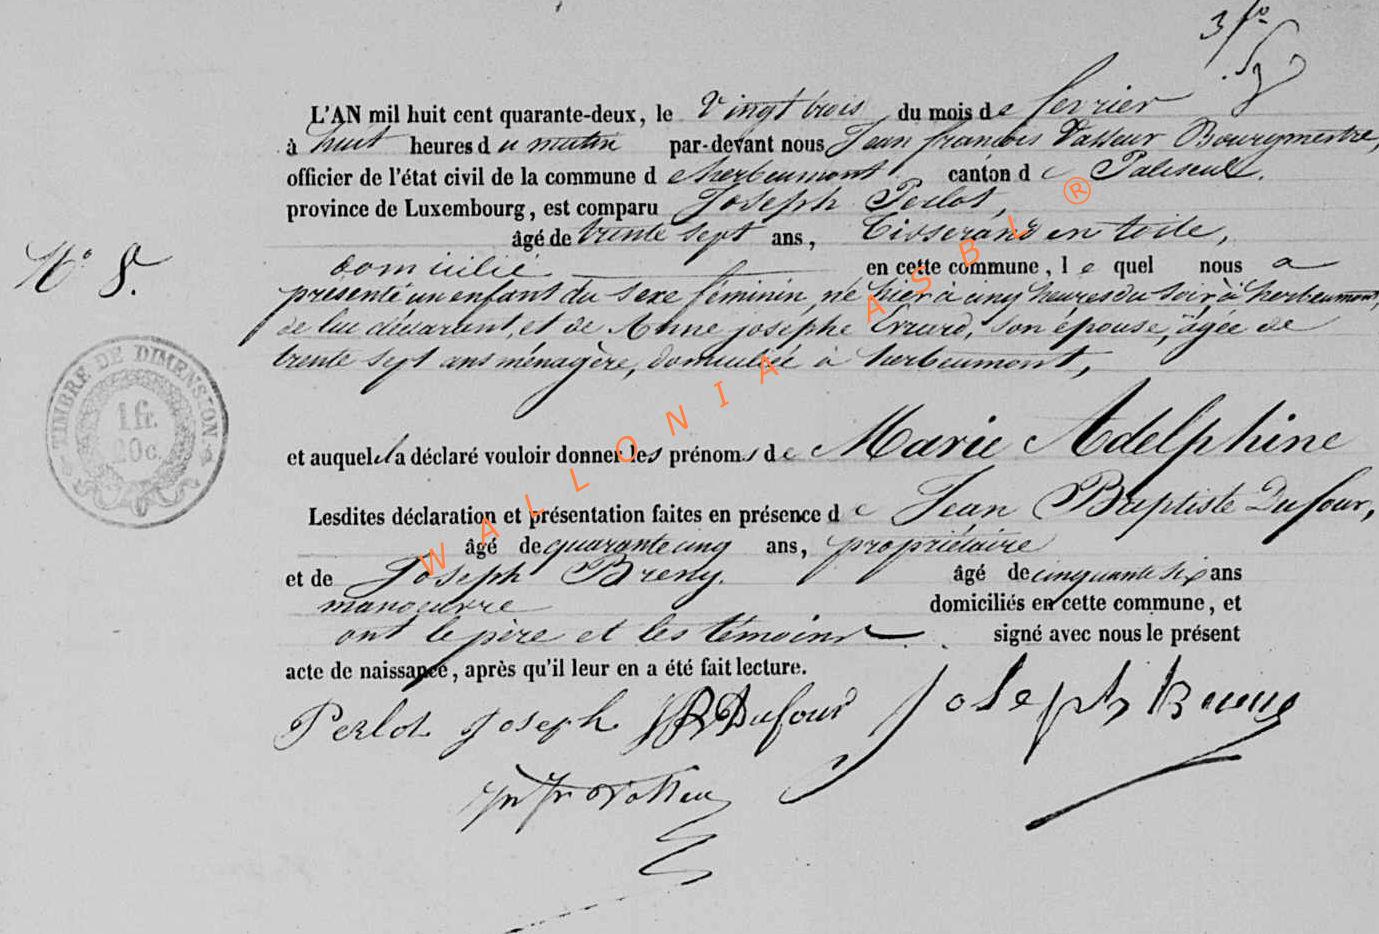 3 fo
L'AN mil huit cent quarante-deux, le Vingt trois du mois de fevrier
à huit heures du matin par-devant nous Jean francois Vasseur Bourgmestre,
officier de l'état civil de la commune d'herbeumont canton de Paliseul.
province de Luxembourg, est comparu Joseph Perlot,
âgé de trente sept ans, Tisserand en toile,
N° 8.
domicilié en cette commune, le quel nous a
présenté un enfant du sexe féminin, né hier à cinq heures du soir à herbeumont,
de lui déclarant, et de Anne josephe Evrard, son épouse, âgée de
trente sept ans ménagère, domiciliée à herbeumont,
TIMBRE DE DIMENSION
1 fr.
20 c.
et auquel il a déclaré vouloir donner les prénoms de Marie Adelphine
Lesdites déclaration et présentation faites en présence de Jean Baptiste Dufour,
âgé de quarante cinq ans, propriétaire
et de Joseph Breny. âgé de cinquante six ans
manoeuvre domiciliés en cette commune, et
ont le père et les témoins signé avec nous le présent
acte de naissance, après qu'il leur en a été fait lecture.
Perlot Joseph JB Dufour Joseph
WALLONIA ASBL ®